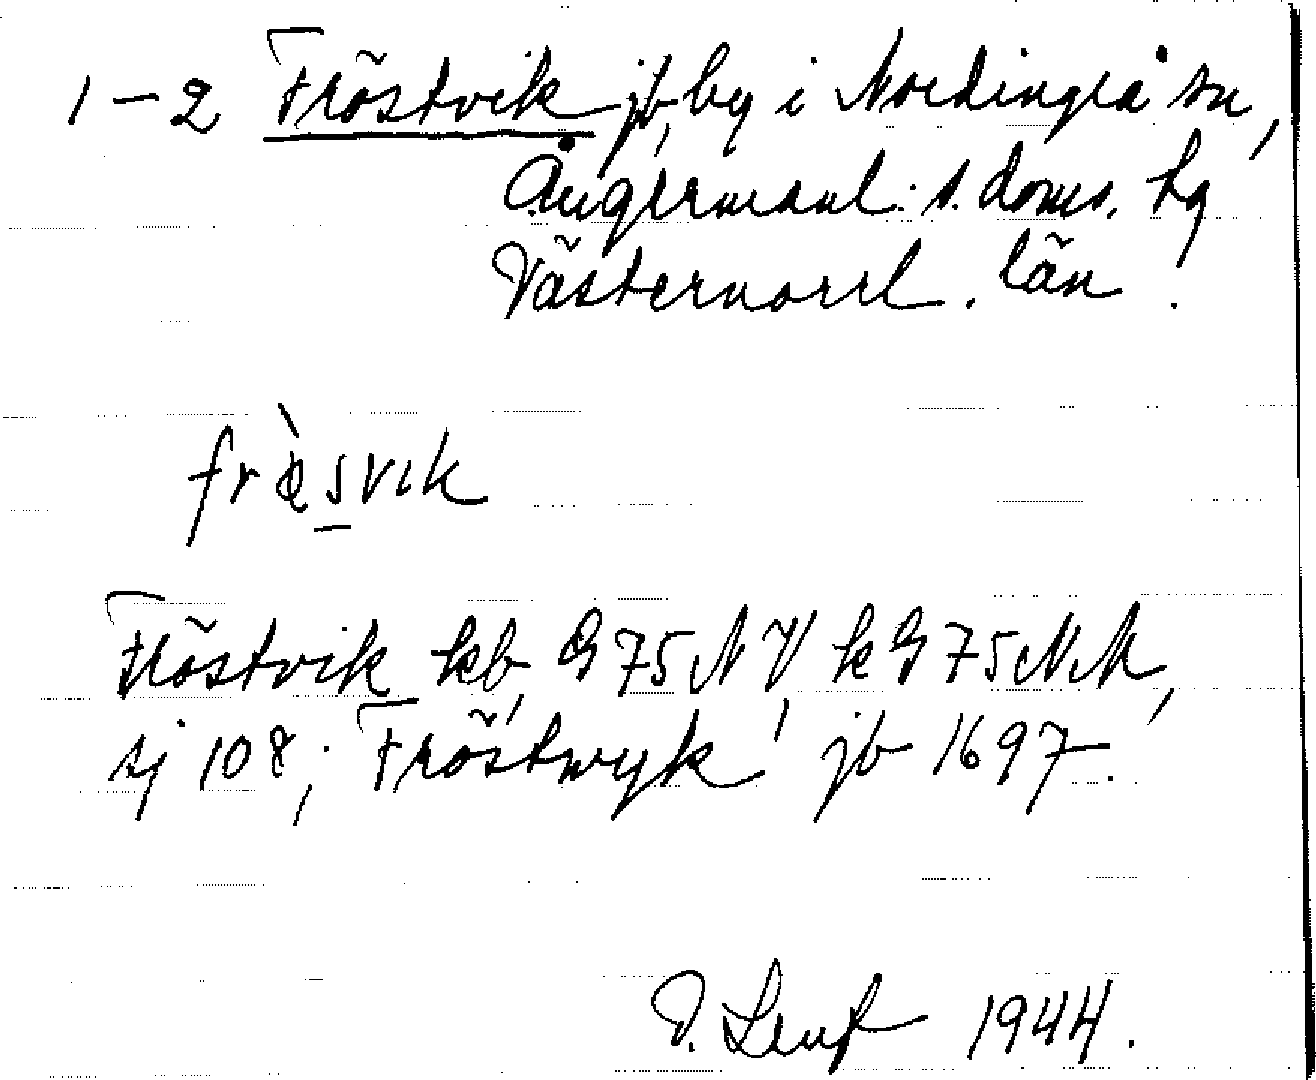 1–2 Fröstvik jb, by i Nordingrå sn,
Ångermanl. s. doms. hg
Västernorrl. län.
frὲsvik
Fröstvik kb, G 75 NV, k G 75 NV,
sj 108; Fröstwyk jb 1697.
1944.